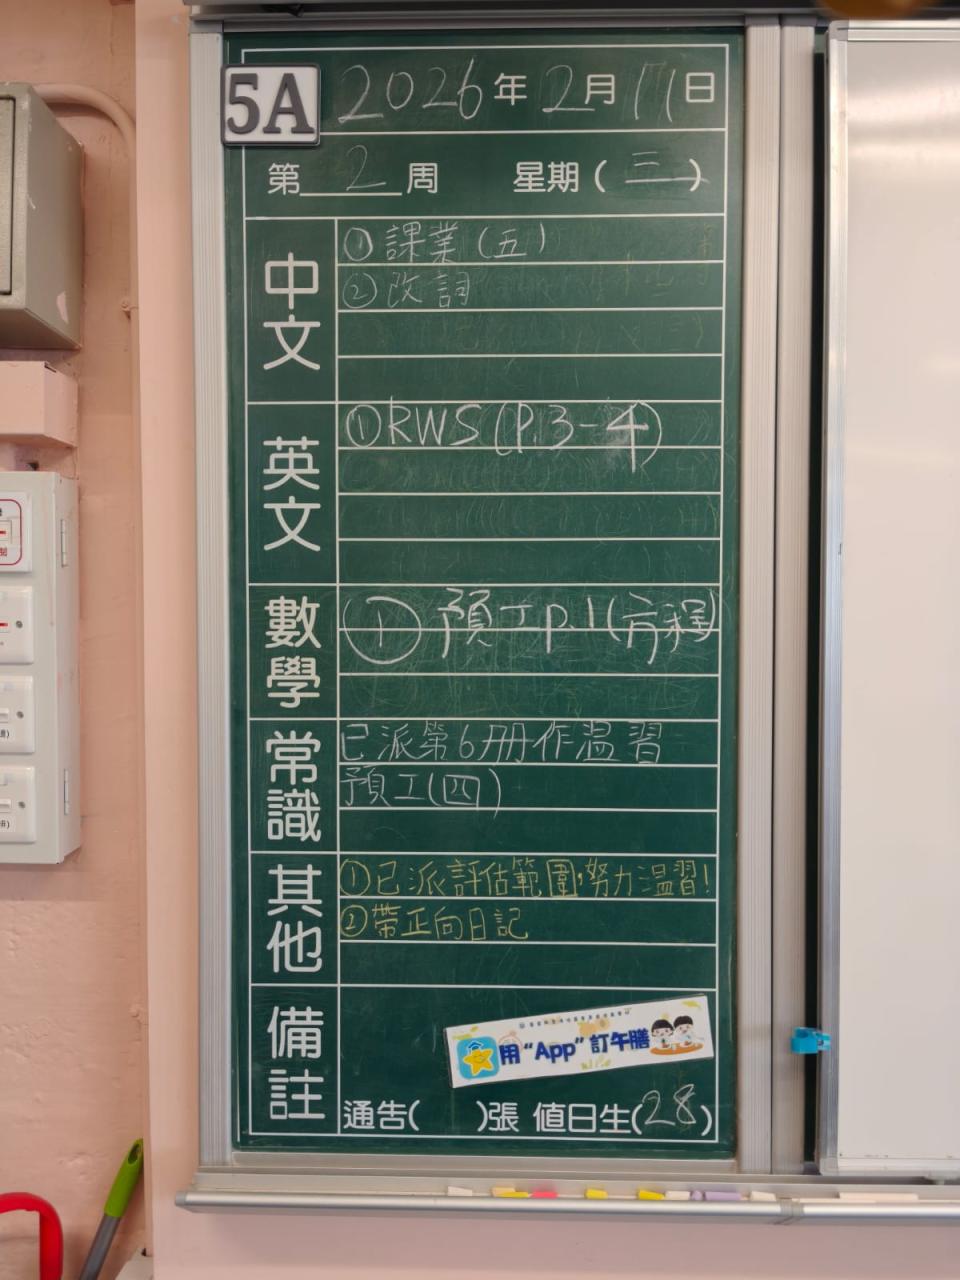 5A 2026年2月11日
第2周 星期(三)
中文
①課業(五)
②改詞
英文
①RWS(P.3-4)
數學
①預工p.1(方程)
常識
已派第6冊作溫習
預工(四)
其他
①已派評估範圍,努力溫習!
②帶正向日記
備註
用“App”訂午膳
通告( )張 值日生(28)